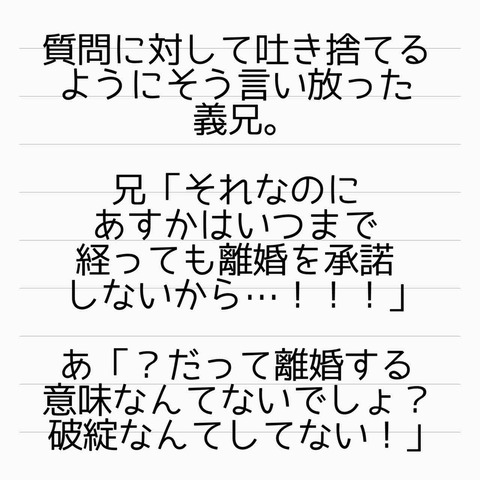 質問に対して吐き捨てる
ようにそう言い放った
義兄。
兄「それなのに
あすかはいつまで
経っても離婚を承諾
しないから…！！！」
あ「？だって離婚する
意味なんてないでしょ？
破綻なんてしてない！」